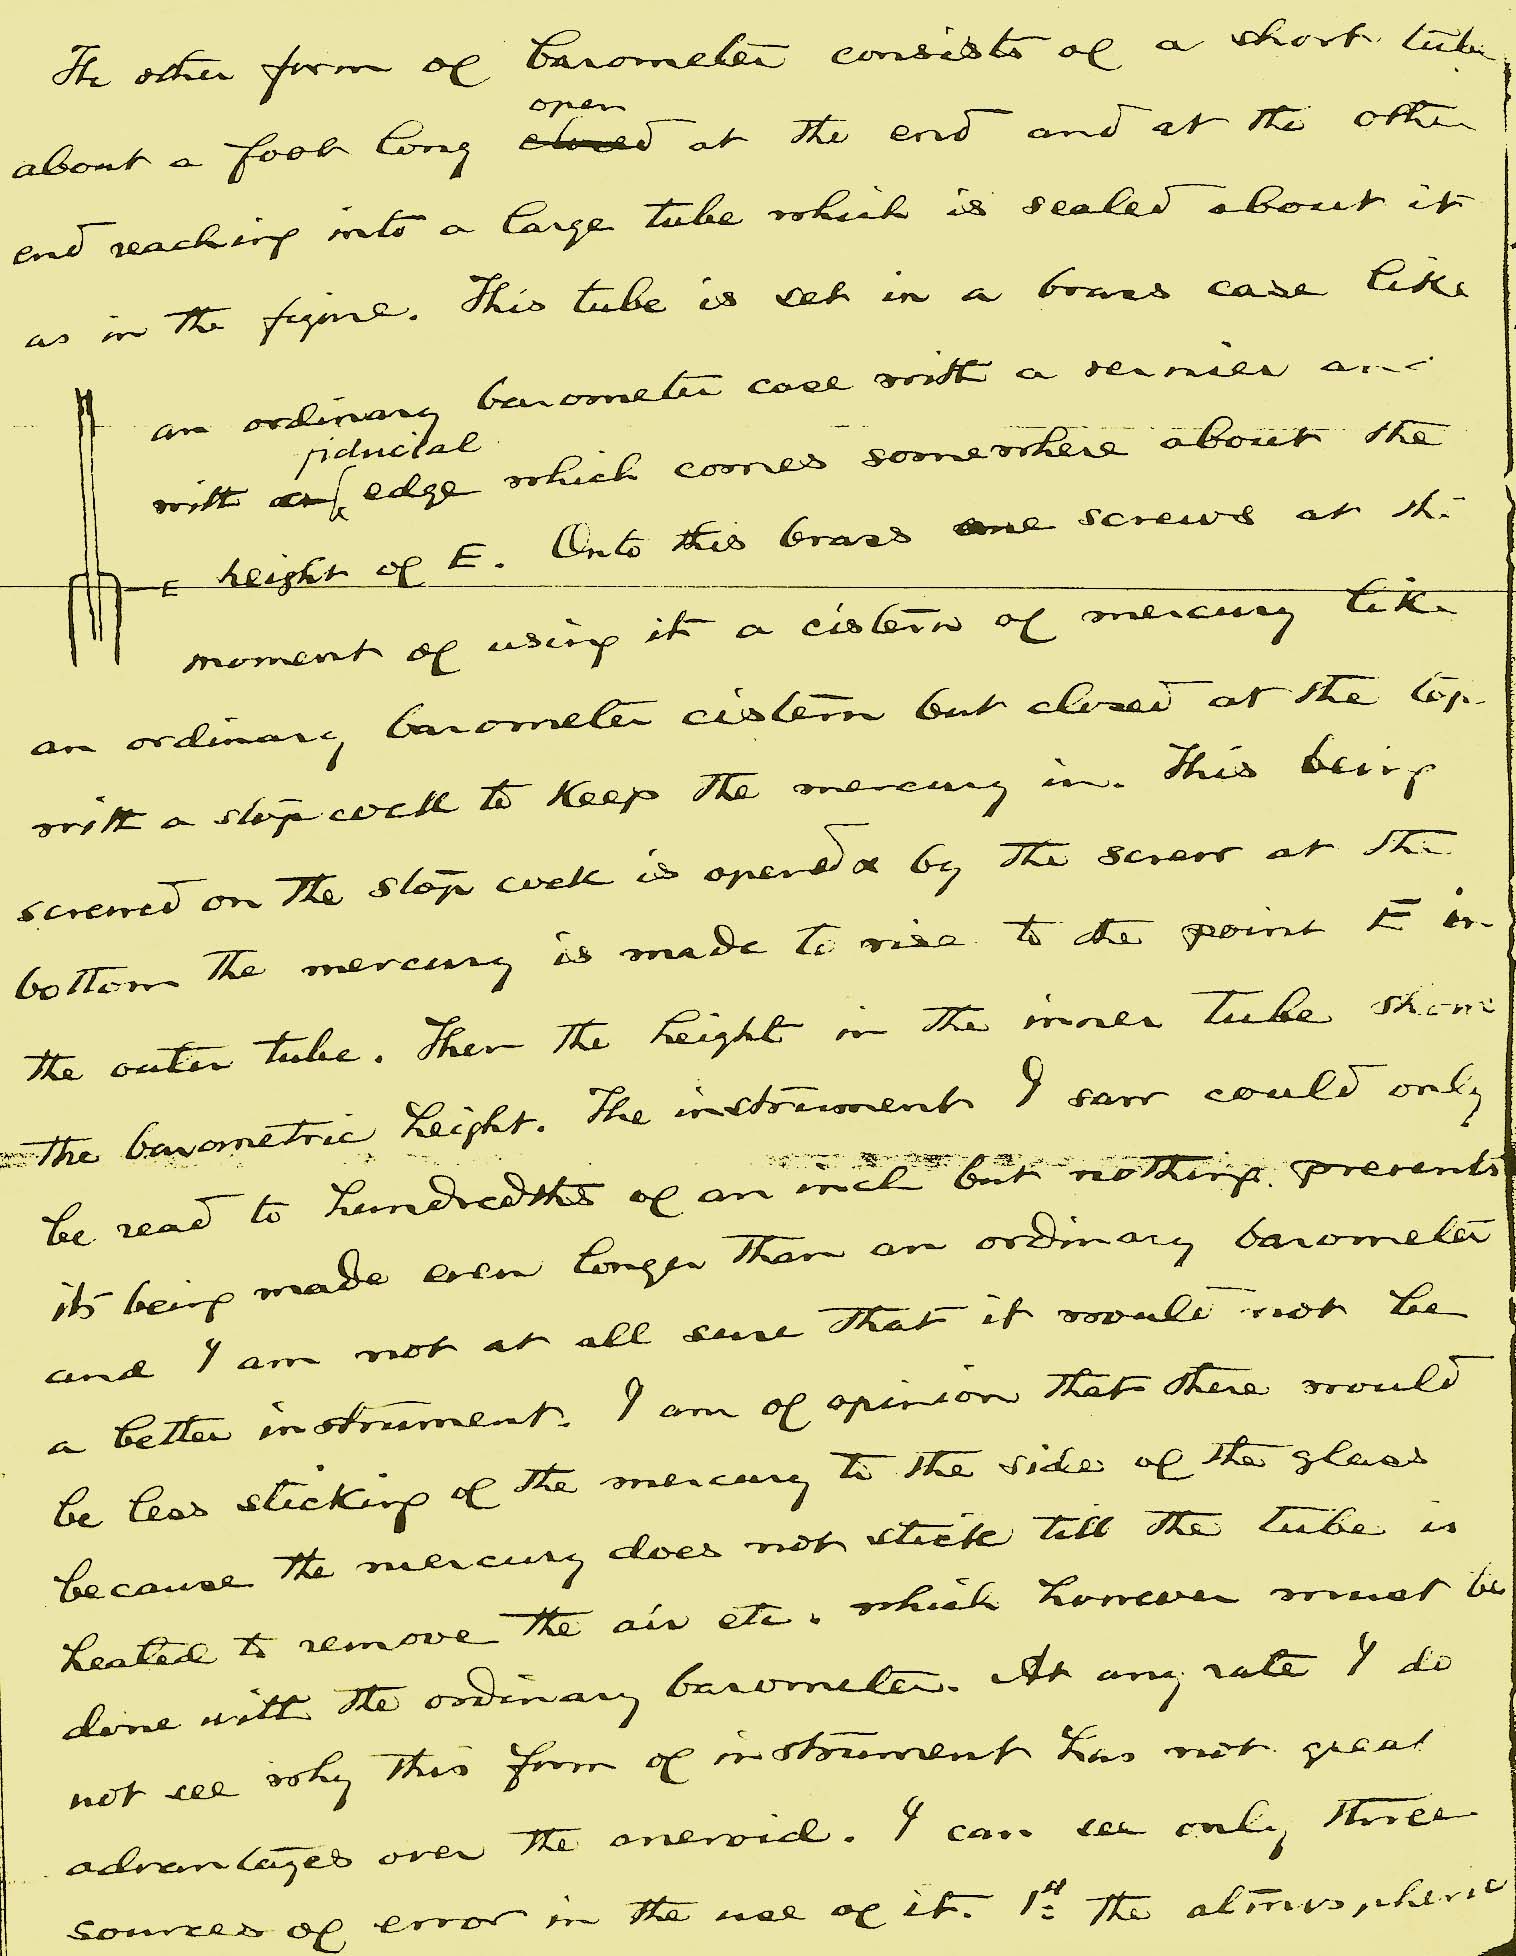 The other form of barometer consists of a short tube
about a foot long open closed at the end and at the other
end reaching into a large tube which is sealed about it
as in the figure. This tube is set in a brass case like
an ordinary barometer case with a vernier and
with an fiducial edge which comes somewhere about the
height of E. Onto this brass one screws at the
E
moment of using it a cistern of mercury like
an ordinary barometer cistern but closed at the top
with a stop cock to keep the mercury in. This being
screwed on the stop cock is opened & by the screw at the
bottom the mercury is made to rise to the point E in
the outer tube. Then the height in the inner tube shows
the barometric height. The instrument I saw could only
be read to hundredths of an inch but nothing prevents
its being made even longer than an ordinary barometer
and I am not at all sure that it would not be
a better instrument. I am of opinion that there would
be less sticking of the mercury to the side of the glass
because the mercury does not stick till the tube is
heated to remove the air etc. which however must be
done with the ordinary barometer. At any rate I do
not see why this form of instrument has not great
advantages over the aneroid. I can see only three
sources of error in the use of it. 1st the atmospheric